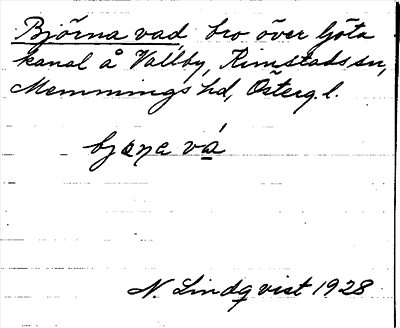 Björna vad, bro över Göta
kanal å Vallby, Rimstads sn,
Memmings hd, Österg.l.
bjɷṇa vá
N. Lindqvist 1928